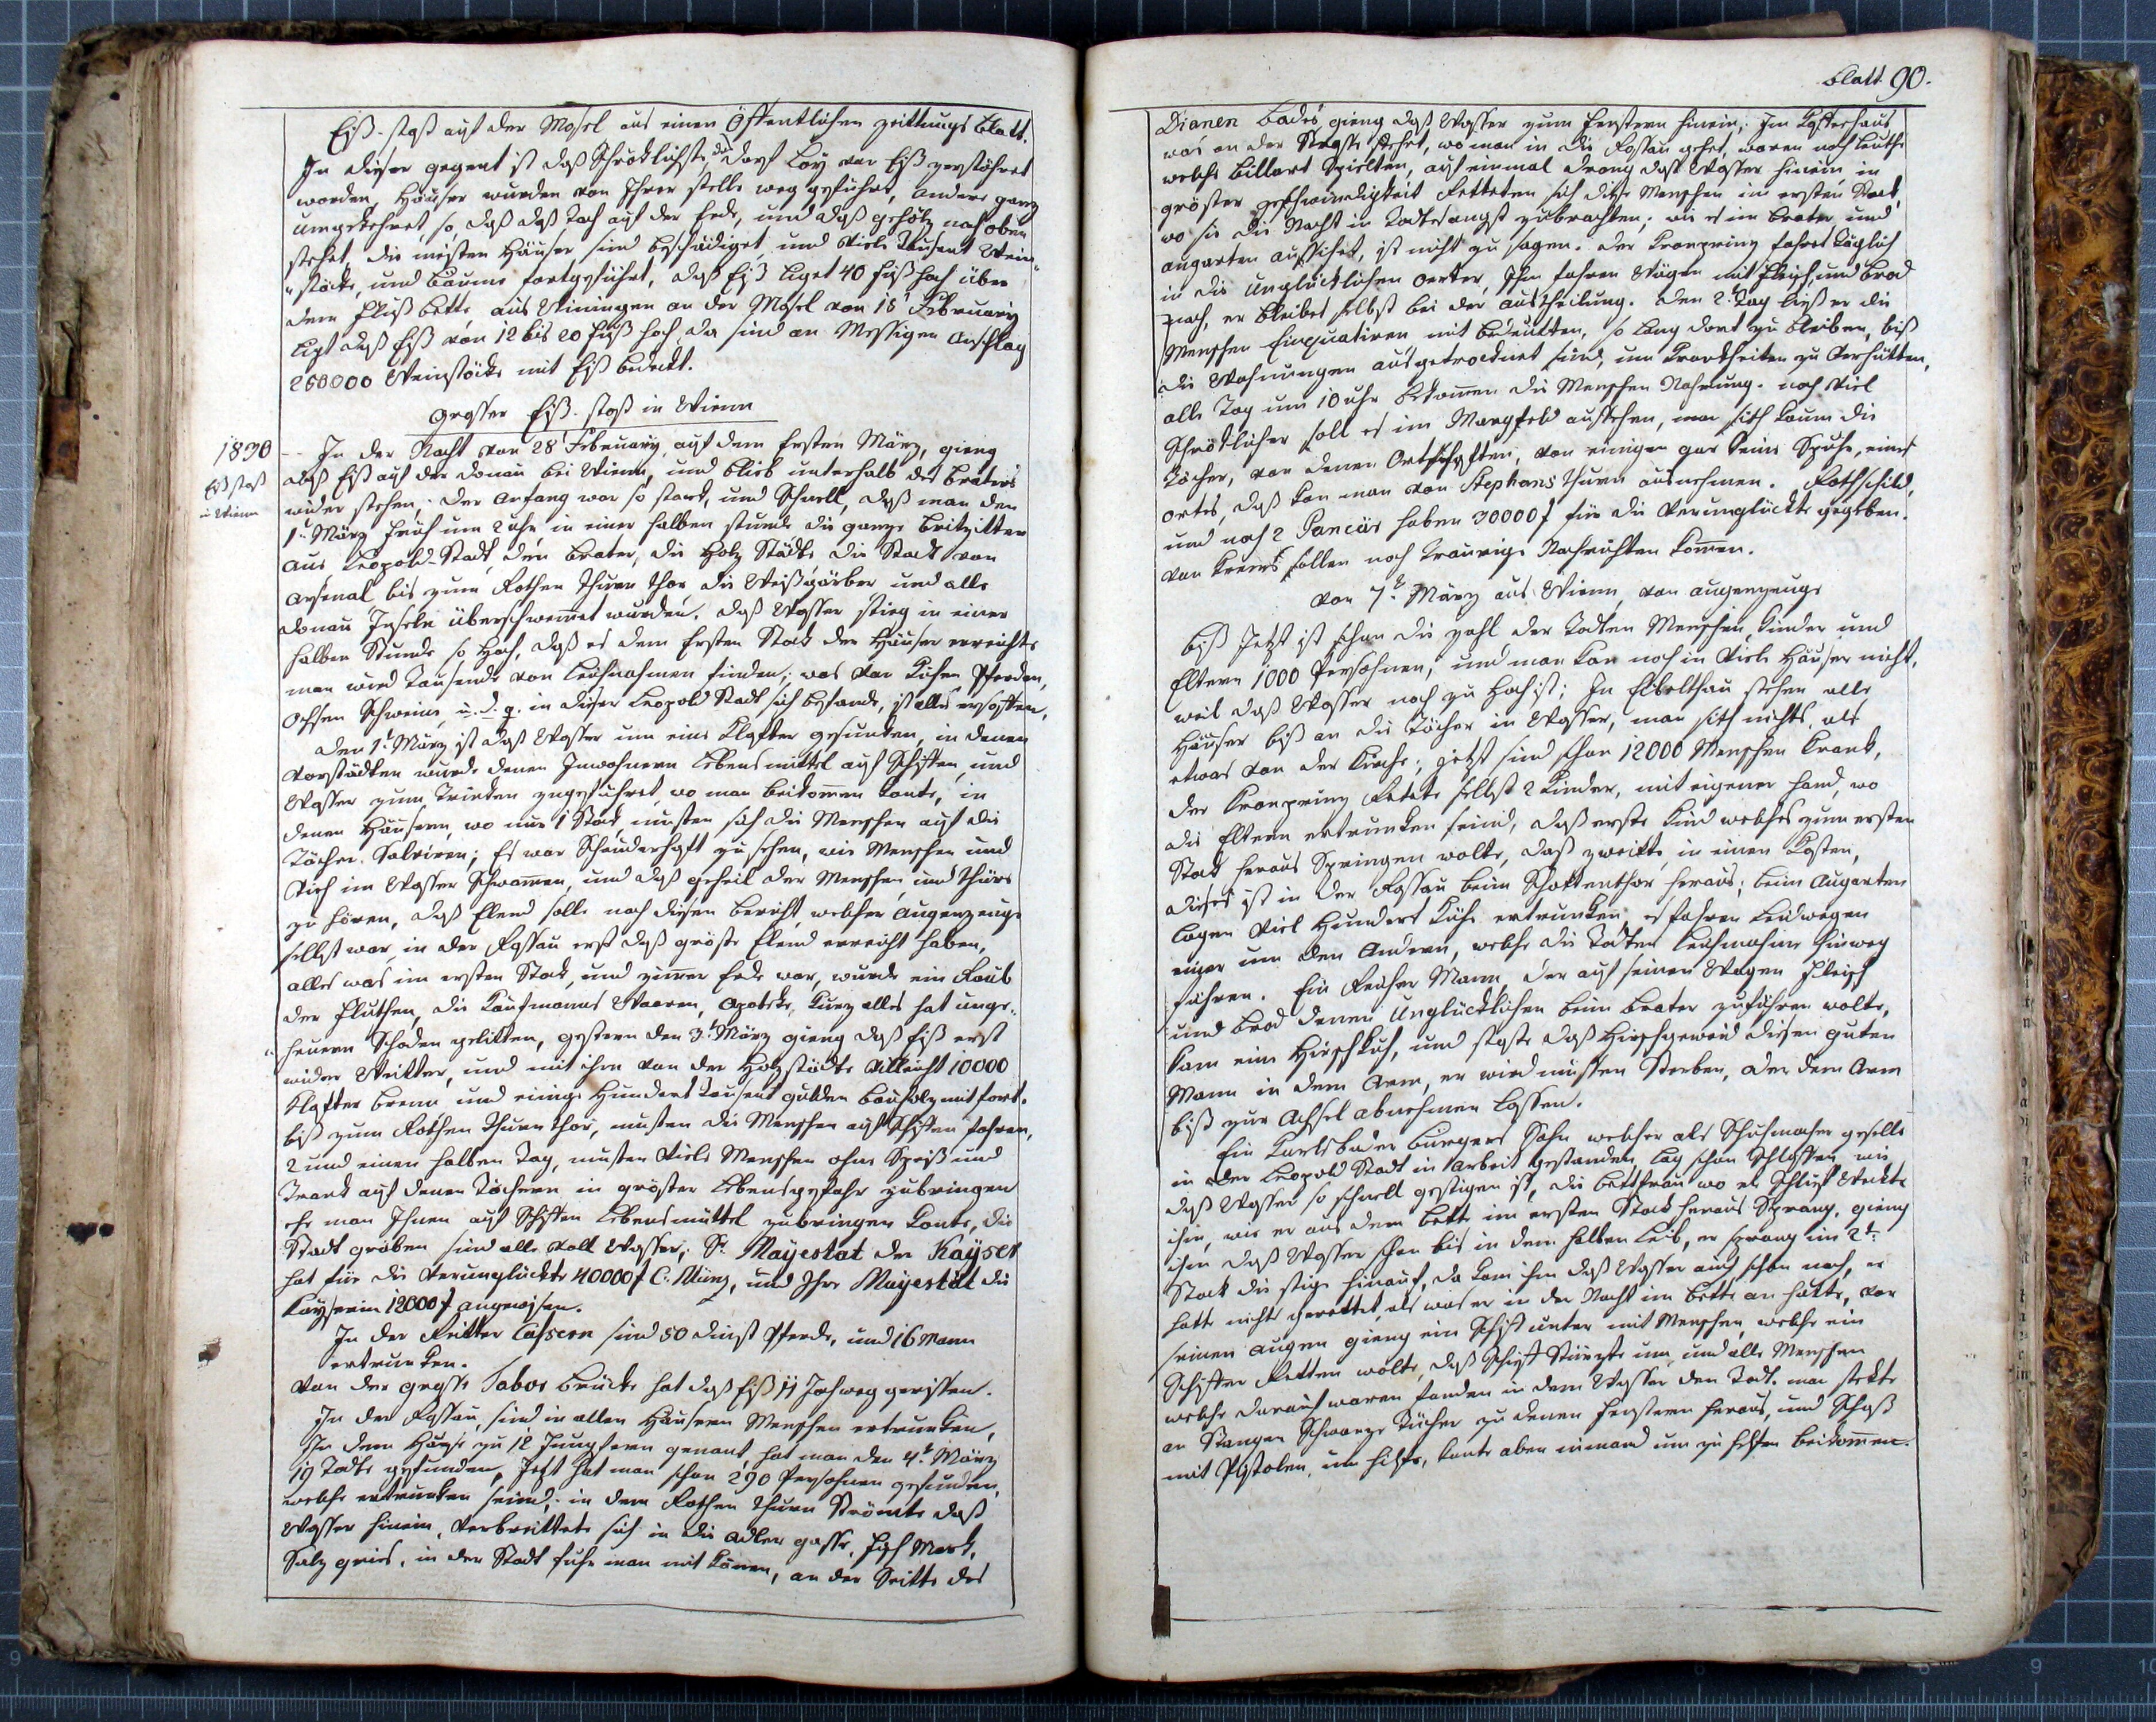 Eiß-stoß auf der Mosel aus einen Öffentlichen zeittungs Blatt.
In dieser gegent ist daß Schröklichste, das dorf Loy vor Eiß zerstöhret
worden, Häuser wurden von Ihrer stelle weg geführt, andere ganz
umgekehret, so daß daß Tach auf der Erde, und daß gehölz nach oben
stehet, die meisten Häuser sind beschädiget, und Viele Tausent Wein-
stöcke, und Bäume fortgeführt, daß Eiß liget 40 fuß hoch über
dem Fluß bette, aus Winingen an der Mosel von 18t February
ligt daß Eiß von 12 bis 20 Fuß hoch, da sind an Messigen Anschlag
260000 Weinstöcke mit Eiß bedekt.
Grosser Eiß-stoß in Wienn
1830
Eiß stoß
in Wienn
In der Nacht von 28t February, auf dem Ersten März, gieng
daß Eiß auf der donau bei Wienn, und blieb unterhalb des Braters
wider stehen, der Anfang war so stark, und Schnell, daß man den
1ten März Früh um 2 uhr in einer halben stunde die ganze Britzitten
aus Leopold-Stadt, den Brater, die Holz Städte die Stadt von
Arsenal bis zum Rothen thurn thor, die Weißgärber und alle
donau Inseln überschwemet wurden. daß Wasser stieg in einer
halben Stunde so hoch, daß es dem Ersten Stock der Häuser erreichte
man wird Tausende von Leichnahmen finden, was von Kühen Pferden,
Ochsen Schweine, u. d. g. in dieser Leopold Stadt sich befande, ist alles ersoffen.
den 1t März ist daß Wasser um eine Klafter gesunken, in denen
Vorstädten wurde denen Inwohnern Lebensmittel auf Schiffen, und
Wasser zum Trinken zugeführet, wo man beikomen konte, in
denen Häusern, wo nur 1 Stock, musten sich die Menschen auf die
Tächer Salviren; Es war Schauderhaft zu sehen, wie Menschen und
Vieh im Wasser Schwamen, und daß geheil der Menschen und thiere
zu hören, daß Elend solle nach diesen bericht, welcher Augenzeuge
selbst war, in der Rossau erst daß gröste Elend erreicht haben,
alles was im ersten Stock, und zimer Erde war, wurde ein Raub
der Fluthen, die Kaufmanns Waaren, Apoteke, kurz alles hat unge-
heuern Schaden gelitten, gestern den 3t März gieng daß Eiß erst
wider Weitter, und mit ihm von der Holzstädte villeicht 10000
Klafter brenn und einige Hundert Tausent gulden Bauholz mit fort.
biß zum Rothen Thurn thor, musten die Menschen auf Schiffen fahren,
2 und einen halben Tag, musten Viele Menschen ohne Speiß und
Trank auf denen Tächern in gröster Lebensgefahr zubringen
ehe man Ihnen auf Schiffen Lebensmittel zubringen konte, die
Stadt gräben sind alle voll Wasser; Sr. Mayestät der Kayser
hat für die Verunglückte 40000 f C: Münz, und Ihre Mayestät die
Kayserin 12000 f angewisen.
In der Reitter Cassern sind 50 dinst Pferde, und 16 Mann
ertrunken.
Von der grosse Tabor brücke hat daß Eiß 11 Joch weg gerissen.
In der Rossau, sind in allen Häusern Menschen ertrunken,
In dem Hause zu 12 Jungfern genant, hat man den 4t März
19 Todte gefunden, Jetzt hat man schon 290 Persohnen gefunden,
welche ertrunken seind; in dem Rothen thurn Strömte daß
Wasser hinein, Verbreittete sich in die Adler gasse, Fisch Mark,
Salz gries, in der Stadt fuhr man mit Känen, an der Seitte des
Blatt. 90.
Dianen Bades gieng daß Wasser zum Fenstern hinein; Im Kaffeehaus
was an der Strasse stehet, wo man in die Rossau gehet, waren noch leuthe
welche Billart Spielten, auf einmal drang daß Wasser hinein, in
gröster geschwindigkeit Retteten sich diese Menschen im ersten Stock,
wo sie die Nacht in Todtesangst zubrachten; wie es im Brater und
Augarten aussihet, ist nicht zu sagen. der Kronprinz fahret täglich
in die Unglücklichen Oerter, Ihm fahren Wägen mit Fleisch, und brod
nach, er bleibet selbst bei der austheilung. den 2t Tag ließ er die
Menschen Einquatiren mit bedeutten, so lang dort zu bleiben, biß
die Wohnungen ausgetrocknet sind, um Krankheiten zu Verhütten,
alle Tag um 10 uhr bekomen die Menschen Nahrung. noch Viel
Schröklicher soll es im Marchfeld aussehen, man sieht kaum die
Tächer, von denen Ortschaften, von einigen gar keine Spuhr, eines
Ortes, daß kan man von Stephans Thurn ausnehmen. Rothschild,
und noch 2 Panciir haben 30000 f für die Verunglückte gegeben.
von Krems sollen noch traurige Nachrichten komen.
von 7t März aus Wienn, von augenzeuge
biß Jetzt ist schon die zahl der Todten Menschen, Kinder und
Eltern 1000 Persohnen, und man kan noch in Viele Häuser nicht,
weil daß Wasser noch zu hoch ist; In Eibelthau stehen alle
Häuser biß an die Tächer in Wasser, man sieht nichts, als
etwas von der Kirche; jetzt sind schon 12000 Menschen krank,
der Kronprinz Retete selbst 2 Kinder, mit eigener hand, wo
die Eltern ertrunken seind, daß erste Kind welches zum ersten
Stock heraus Springen wolte, daß zweitte in einen Kasten,
dieses ist in der Rossau beim Schottenthor heraus; beim Augarten
lagen Viel Hundert Kühe ertrunken, es fahren Leichwagen
einer um den Andern, welche die Todten Leichnahme hinweg
führen. Ein Reicher Mann, der auf seinen Wagen Fleisch
und brod denen Unglücklichen beim Brater zuführen wolte,
kam eine Hirschkuh, und stoste daß Hirschgeweid diesen guten
Mann in dem Arm, er wird müssen Sterben, oder dem Arm
biß zur Achsel abnehmen lassen.
Ein Karlsbader Burgers Sohn welcher als Schuhmacher geselle
in der Leopold Stadt in Arbeit gestanden, lag schon Schlaffen, wie
daß Wasser so schnell gestigen ist, die bettfrau wo er Schlief Wekte
ihn, wie er aus dem bette im ersten Stock heraus Sprang, gieng
ihm daß Wasser schon bis in dem halben Leib, er sprang im 2t
Stock die stige hinauf, da kam ihm daß Wasser auch schon nach, er
hatte nichts gerettet, als was er in der Nacht im bette an hatte, vor
seinen augen gieng ein Schif unter mit Menschen, welche ein
Schiffer Retten wolte, daß Schieff Stürzte um, und alle Menschen
welche darauf waren fanden in dem Wasser den Todt. man stekte
an Stangen Schwarze Tücher zu denen Fenstern heraus, und Schoß
mit Pistolen, um hilfe, konte aber nimand um zu helfen beikomen.